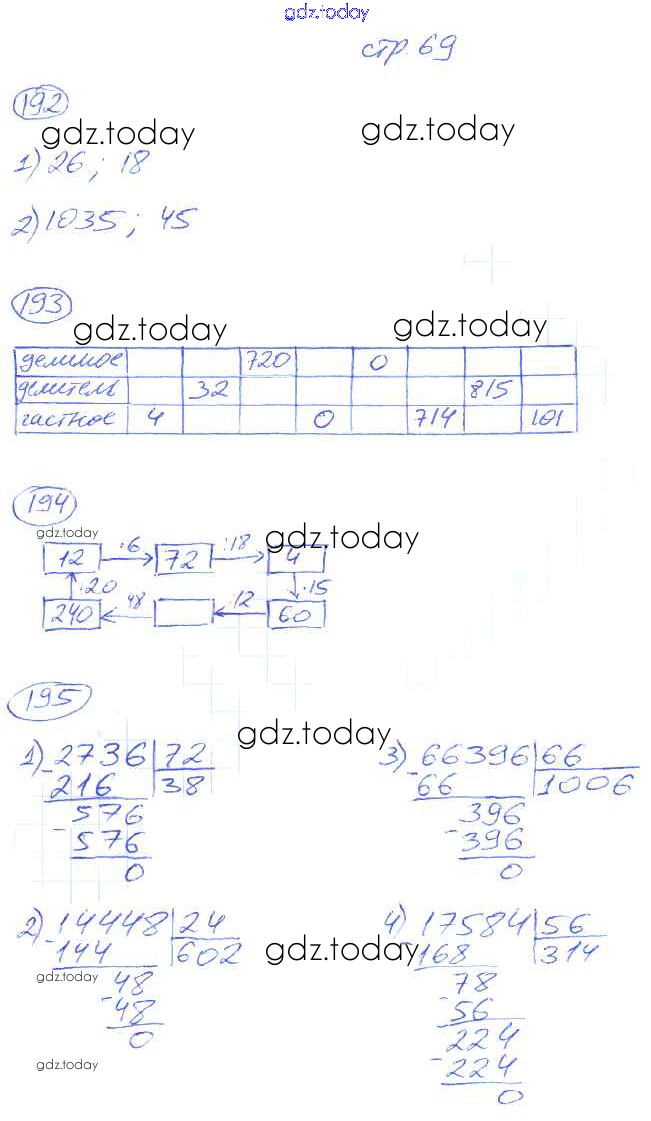 gdz.today
стр. 69
192
gdz.today gdz.today
1) 26 ; 18
2) 1035 ; 45
193
gdz.today gdz.today
делимое 720 0
делитель 32 815
частное 4 0 714 101
194
gdz.today gdz.today
12 ·6 72 :18 4
·20 ·15
240 48 :12 60
195
gdz.today
1) 2736 72 3) 66396 66
- 216 38 - 66 1006
576 396
- 576 - 396
0 0
2) 14448 24 4) 17584 56
- 144 602 gdz.today - 168 314
gdz.today 48 78
- 48 - 56
0 224
gdz.today - 224
0